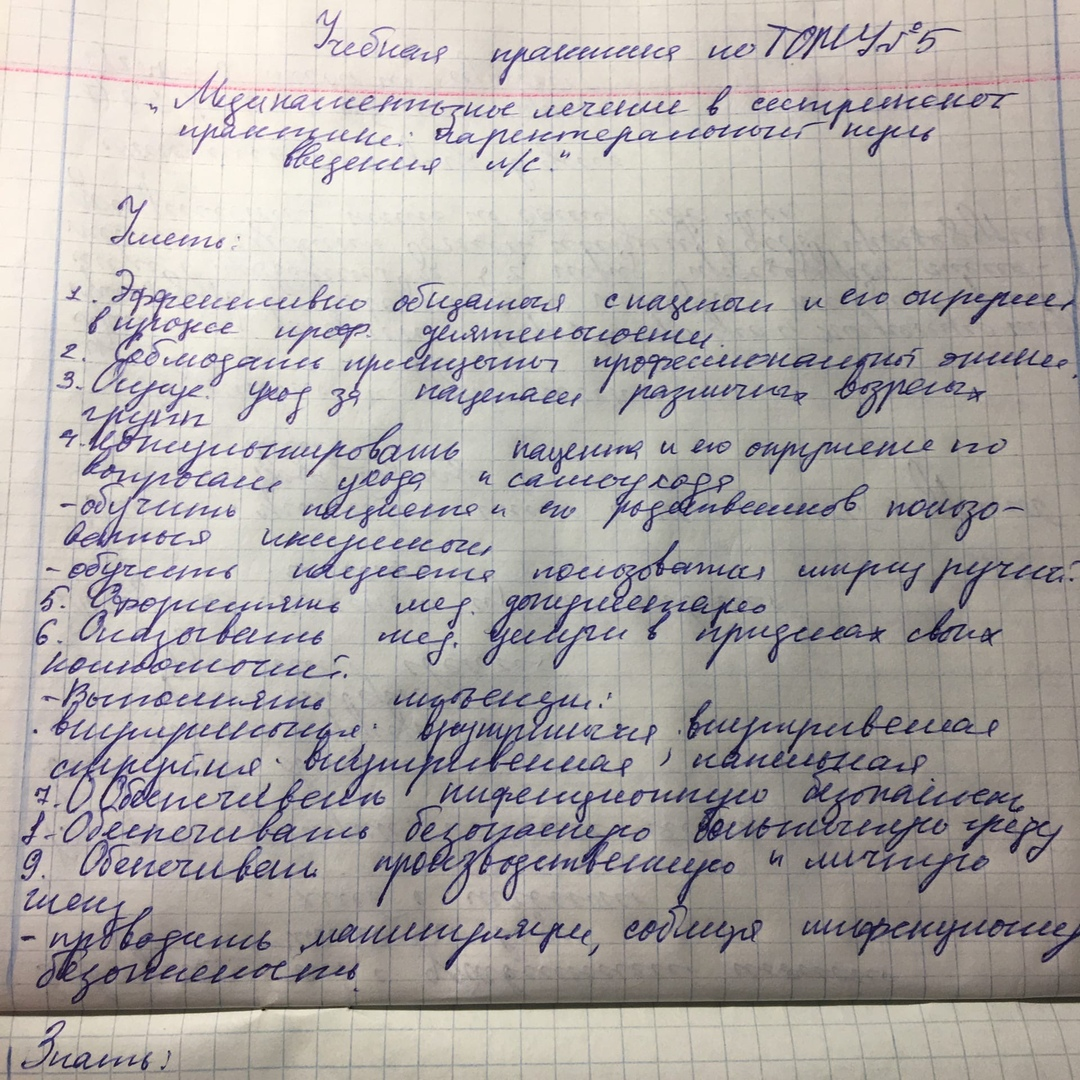 Учебная практика по ТОМУ №5
„Медикаментозное лечение в сестринской
практике: Парентеральный путь
введения л/с."
Уметь:
1. Эффективно общаться с пациентом и его окружен
в процессе проф. деятельности.
2. Соблюдать принципы профессиональной этики.
3. Осущ. уход за пациентами различных возрастных
групп
4. Консультировать пациента и его окружение по
вопросам ухода и самоухода
- обучить пациента и его родственников пользо-
ваться инсулином
- обучить пациента пользоваться шприц ручкой.
5. Оформлять мед. документацию
6. Оказывать мед. услуги в пределах своих
полномочий.
- Выполнять инъекции:
· внутримышечная · внутривенная
струйная · внутривенная, капельная
7. Обеспечивать инфекционную безопасность
8. Обеспечивать безопасную больничную среду
9. Обепечивать производственную и личную
гигиену
- проводить манипуляции, соблюдая инфекционную
безопасность.
Знать: